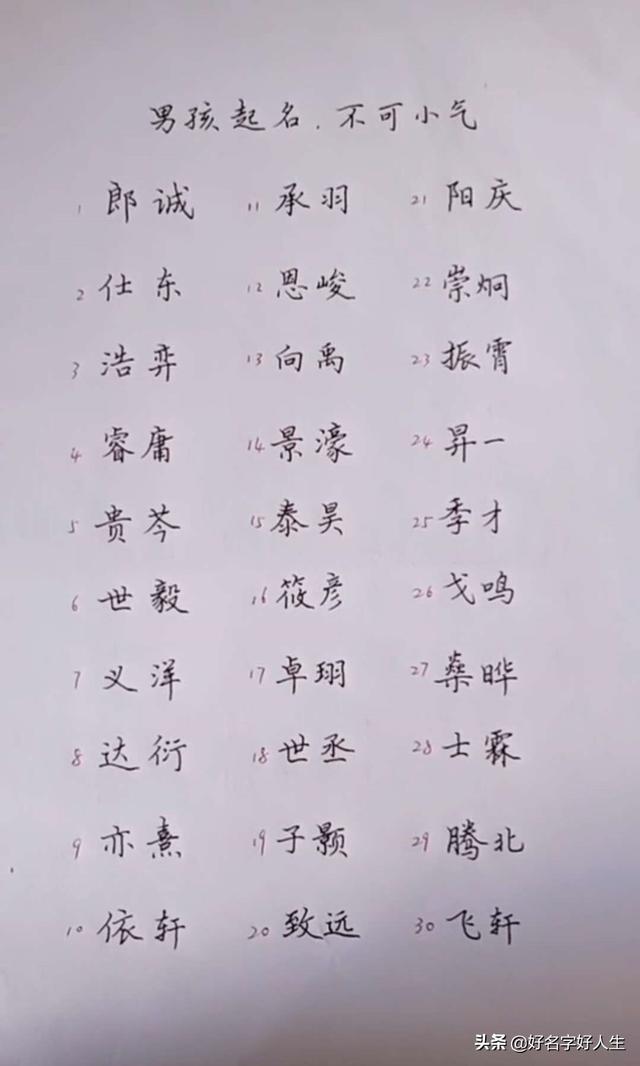 男孩起名.不可小气
1 郎诚 11 承羽 21 阳庆
2 仕东 12 恩峻 22 崇炯
3 浩弈 13 向禹 23 振霄
4 睿庸 14 景濠 24 昇一
5 贵芩 15 泰昊 25 季才
6 世毅 16 筱彦 26 戈鸣
7 义洋 17 卓珝 27 燊晔
8 达衍 18 世丞 28 士霖
9 亦熹 19 子颢 29 腾北
10 依轩 20 致远 30 飞轩
头条 @好名字好人生